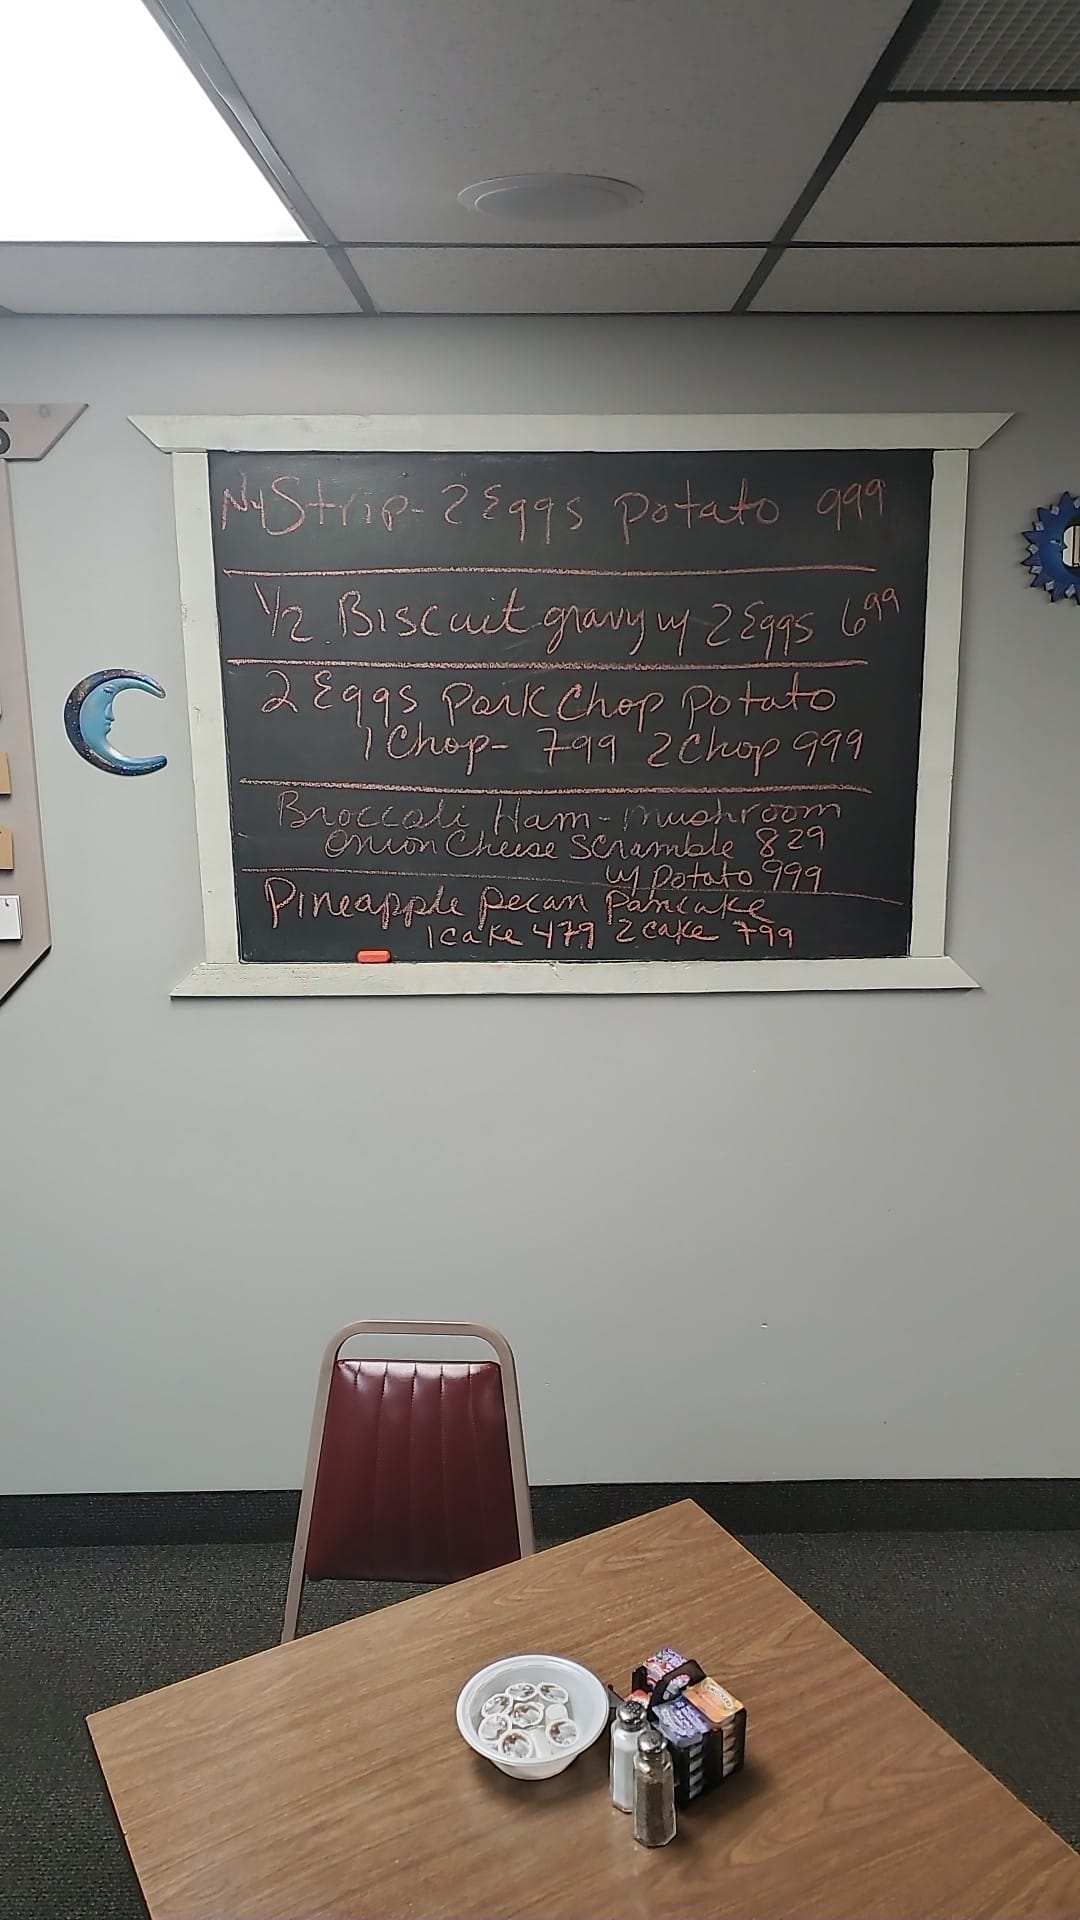 Ny Strip- 2 Eggs potato 999
1/2 Biscuit gravy w/ 2 Eggs 6 99
2 Eggs Pork Chop Potato
1 Chop- 799 2 Chop 999
Broccoli Ham- Mushroom
Onion Cheese Scramble 829
w/ Potato 999
Pineapple Pecan Pancake
1 cake 479 2 cake 799